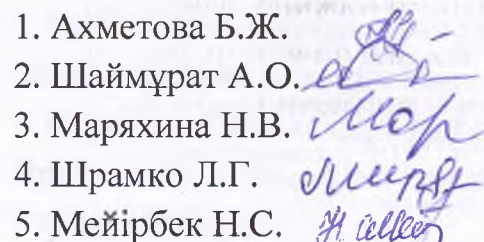 1. Ахметова Б.Ж.
2. Шаймұрат А.О.
3. Маряхина Н.В.
4. Шрамко Л.Г.
5. Мейірбек Н.С.